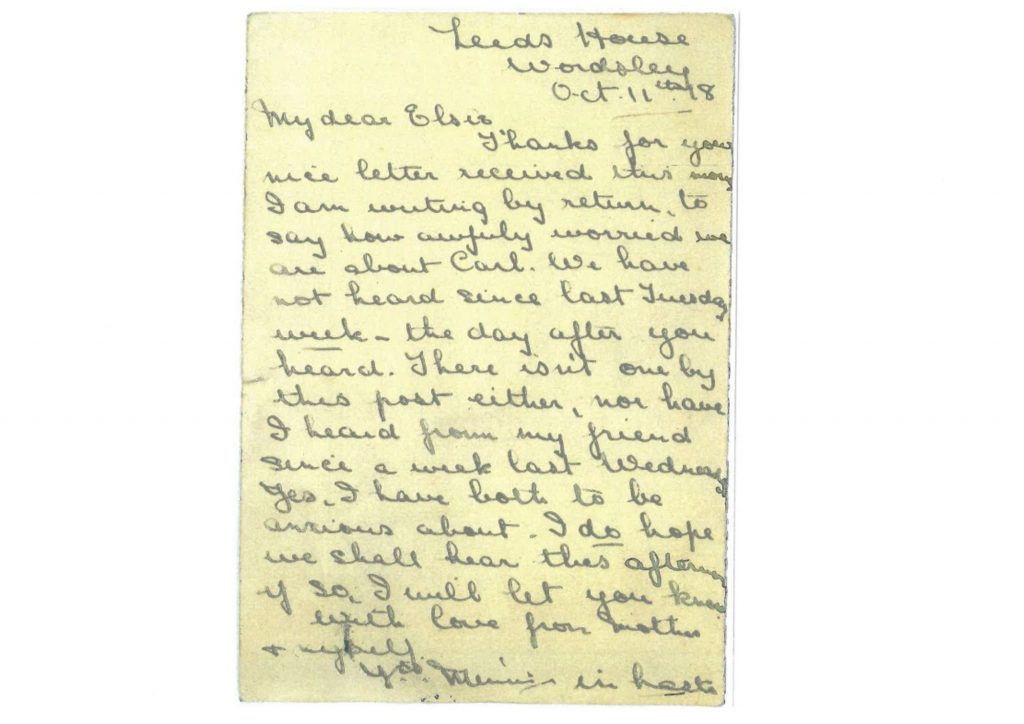 Leeds House
Wordsley
Oct. 11th 18
My dear Elsie
Thanks for your
nice letter received this morng
I am writing by return, to
say how awfuly worried we
are about Carl. We have
not heard since last Tuesday
week - the day after you
heard. There isn't one by
this post either, nor have
I heard from my friend
since a week last Wednesday
Yes, I have both to be
anxious about. I do hope
we shall hear this afternoon
if so, I will let you know
with love from Mother
& myself.
Yrs. Minnie in haste